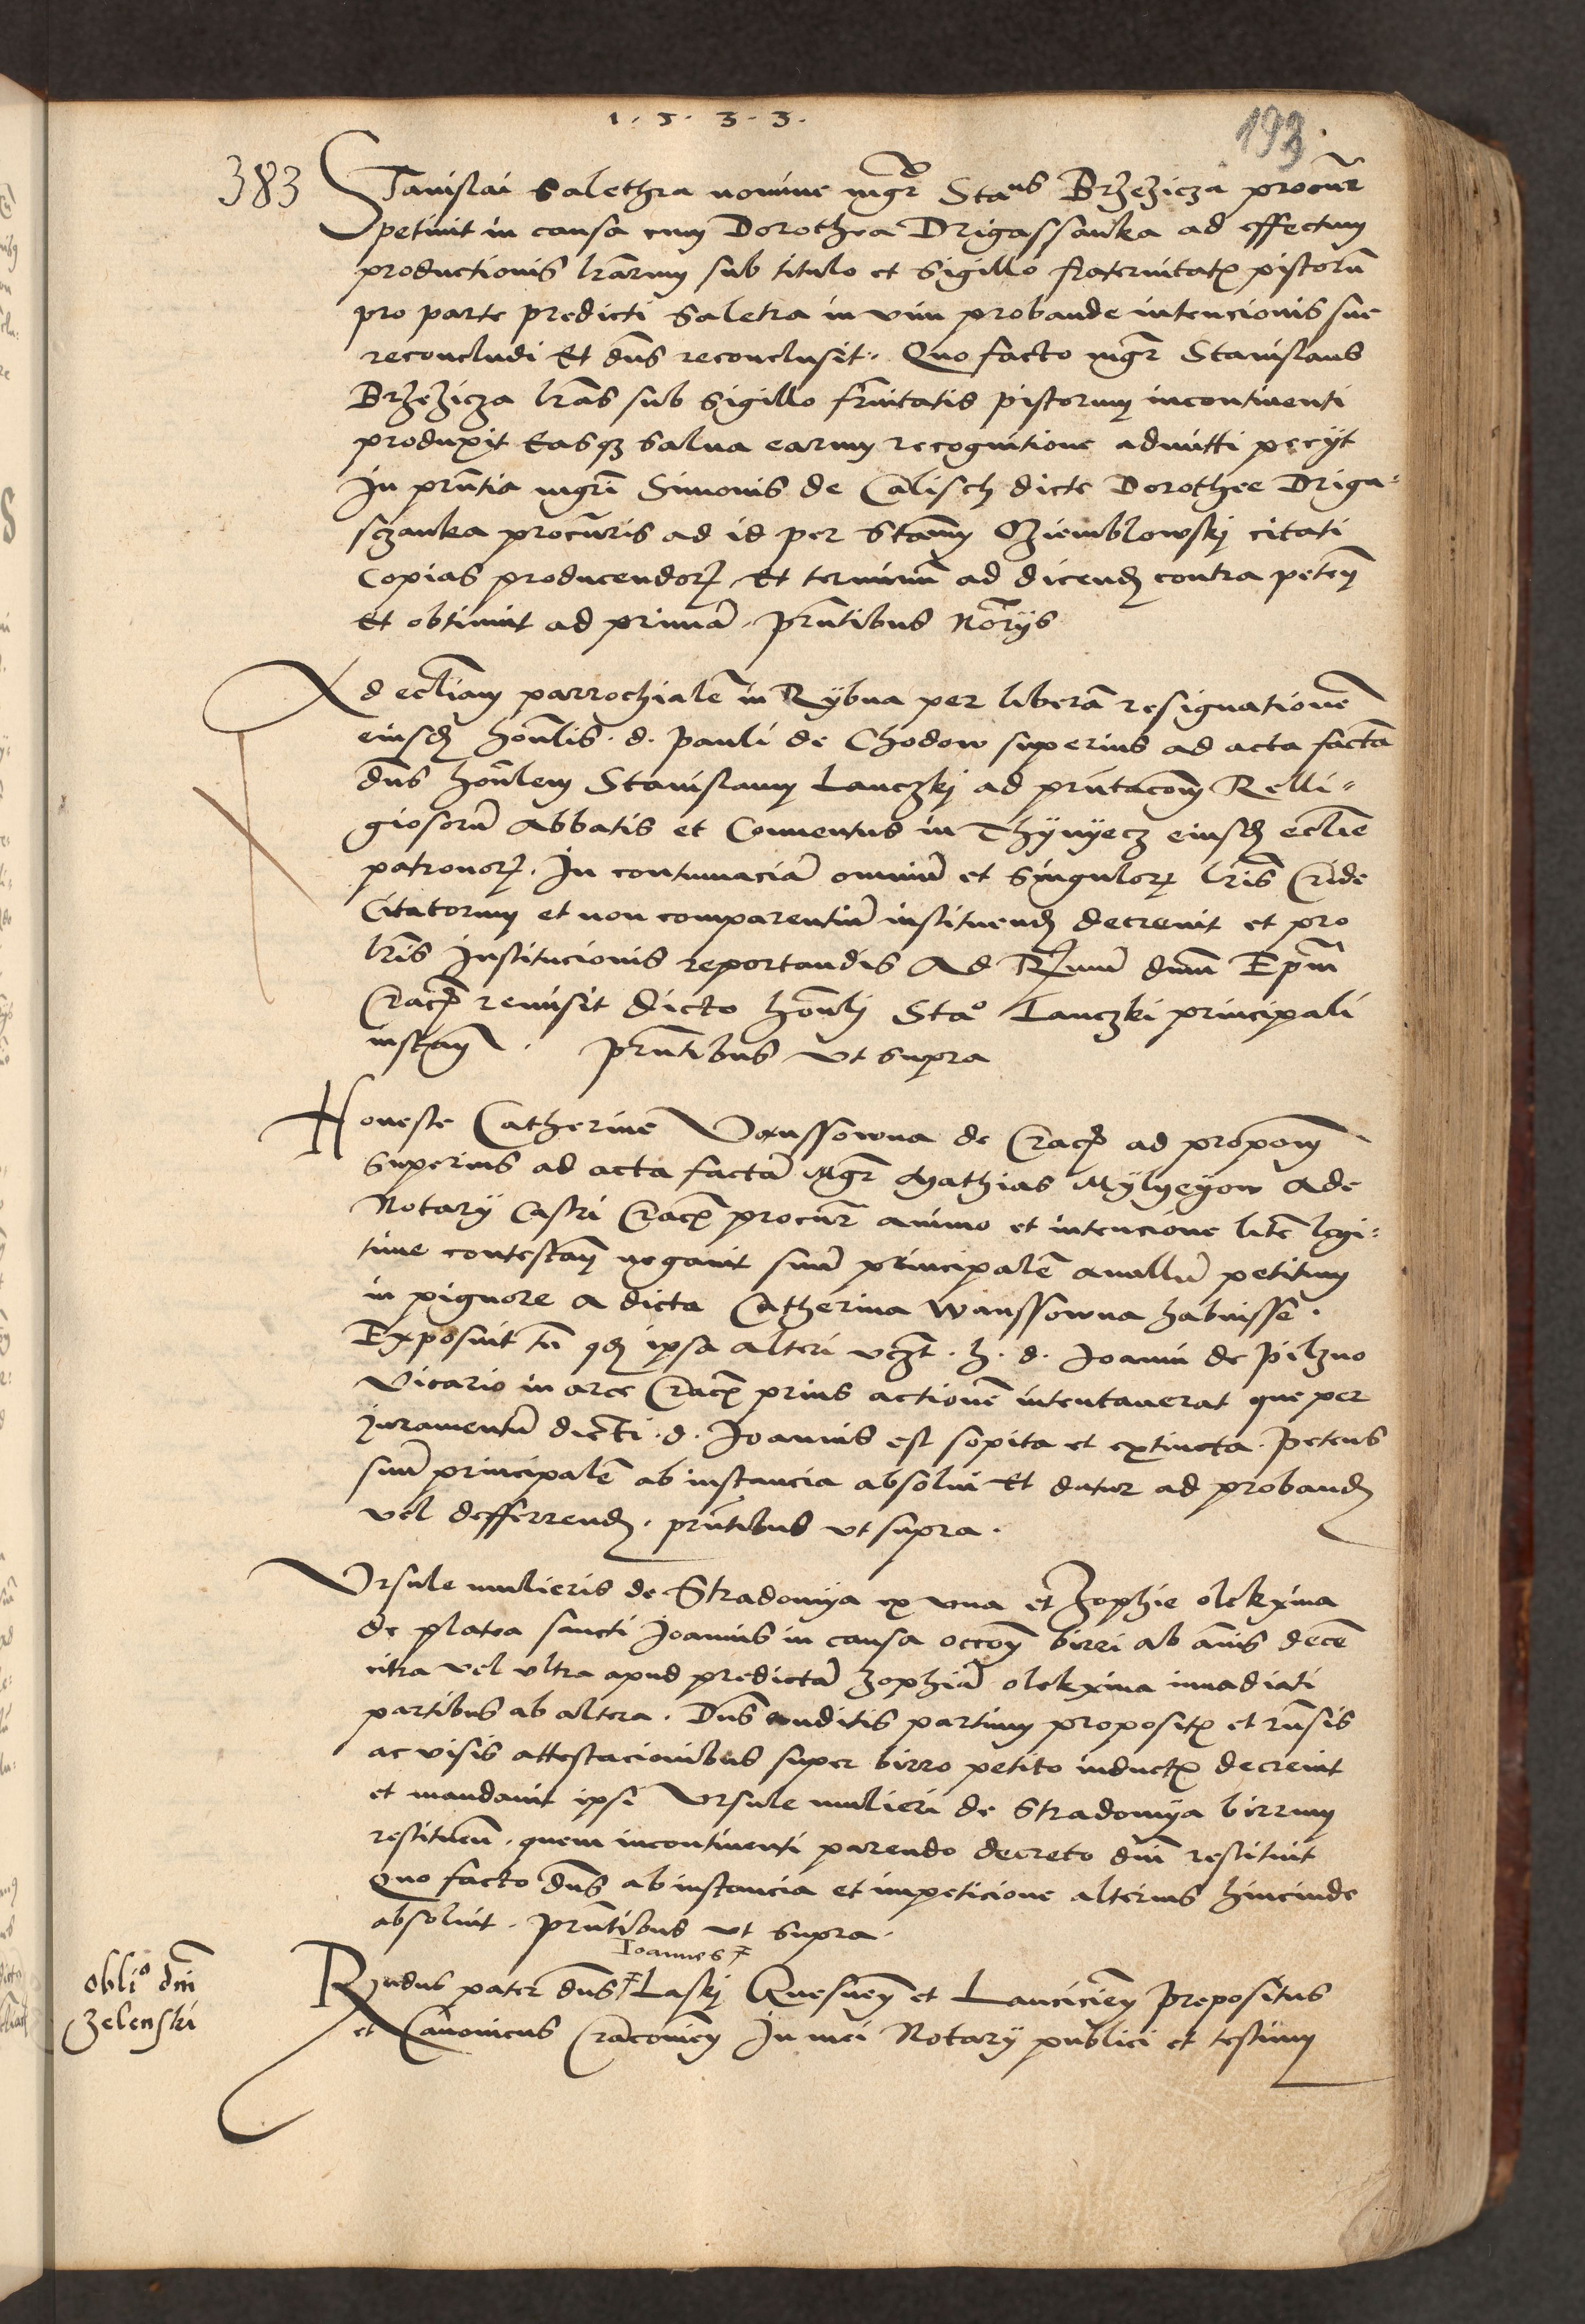 1.5.3.3.
193.
383
Stanislai Salethra nomine mgr Stans Brzezicza procur
petiuit in causa cum Dorothea Drigassanka ad effectum
productionis lrarum sub titulo et sigillo fraternitatis pistorum
pro parte predicti Saletra in vim probande intencionis sue
reconcludi Et dns reconclusit. Quo facto mgr Stanislaus
Brzezicza lras sub sigillo frnitatis pistorum incontinenti
produxit Easqz salua earum recognitione admitti pecyt
In pntia mgri Simonis de Calisch dicte Dorothee Driga-
sczanka procuris ad id per Stam Ziemblowskj citati
Copias producendor Et terminum ad dicend contra peten
Et obtinuit ad primam. pntibus Notrys
Ad eccliam parrochialem in Rybna per liberam resignationem
eiusd honlis d. Pauli de Chodow superius ad acta factam
dns honlem Stanislaum Lanczkj ad pntacom Relli-
giosorum Abbatis et Conuentus in Thynyecz eiusd ecclie
patronor. In contumaciam omnium et singulor lris Cride
Citatorum et non comparentium instituend decreuit et pro
lris Institucionis reportandis Ad Rmum dnm Epm
Crac remisit dicto honli Stao Lanczki principali
instan. pntibus vt supra
Honeste Catherine Vanssowna de Crac ad propom
superius ad acta factam Mgr Mathias Mylyeyow Ade
Notary Castri Crac procur animo et intencione litem legi-
time contestan negauit suum principalem auallum petitum
in pignore a dicta Catherina Wanssowna habuisse.
Exposuit tn qd ipsa alteri vczt. h. d. Joanni de Pilzno
Vicario in arce Crac prius actionem intentauerat que per
juramentum dicti. d. Joannis est sopita et extincta. Petens
suum principalem ab instancia absolui Et datur ad proband
vel defferrend. pntibus vt supra.
Vrsule mulieris de Stradomya ex vna et Zophie olekxina
de platea sancti Joannis in causa occom birri ab annis decem
citra vel vltra apud predictam Zophiam olekxina inuadiati
partibus ab altera. Dns auditis partium propositis et rnsis
ac visis attestacionibus super birro petito inductis decreuit
et mandauit ipsi Vrsule mulieri de Stradomya birrum
restituen. quem incontinenti parendo decreto dni restituit
Quo facto dns ab instancia et impeticione alterius hincinde
absoluit. pntibus vt supra.
Joannes
oblio dni
Zelenski
Rndus pater dns Laskj Gnesnen et Lancicien Prepositus
et Canonicus Cracouien In mei Notary publici et testium